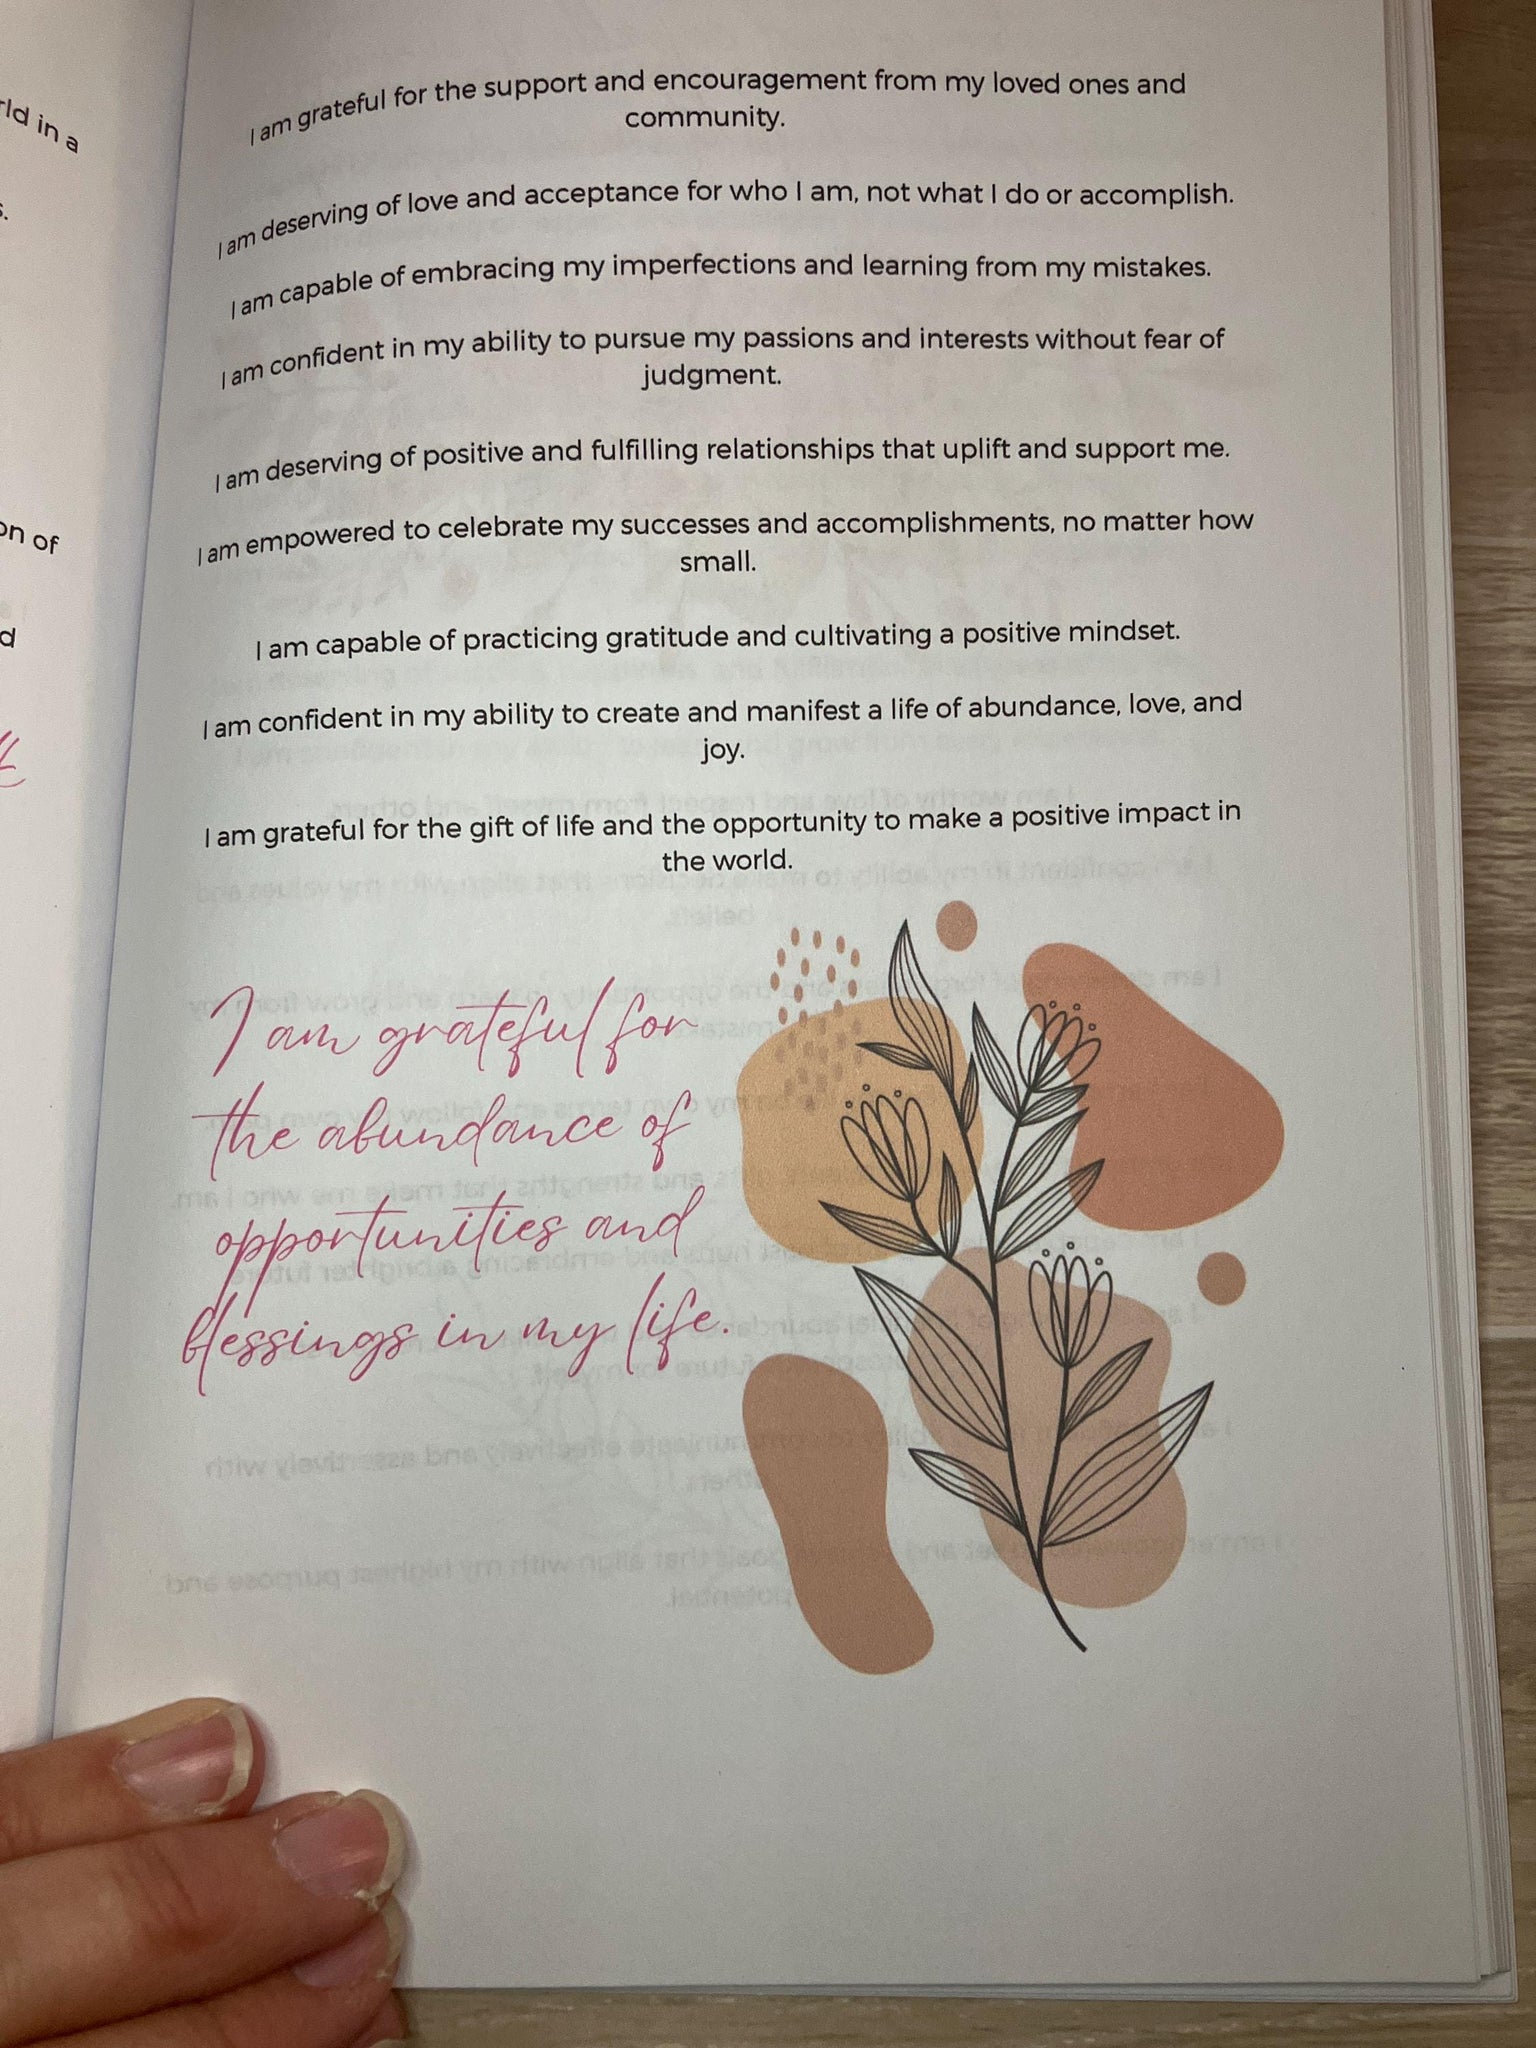 rld in a
s.
on of
d
I am grateful for the support and encouragement from my loved ones and
community.
I am deserving of love and acceptance for who I am, not what I do or accomplish.
I am capable of embracing my imperfections and learning from my mistakes.
I am confident in my ability to pursue my passions and interests without fear of
judgment.
I am deserving of positive and fulfilling relationships that uplift and support me.
I am empowered to celebrate my successes and accomplishments, no matter how
small.
I am capable of practicing gratitude and cultivating a positive mindset.
I am confident in my ability to create and manifest a life of abundance, love, and
joy.
I am grateful for the gift of life and the opportunity to make a positive impact in
the world.
I am grateful for
the abundance of
opportunities and
blessings in my life.